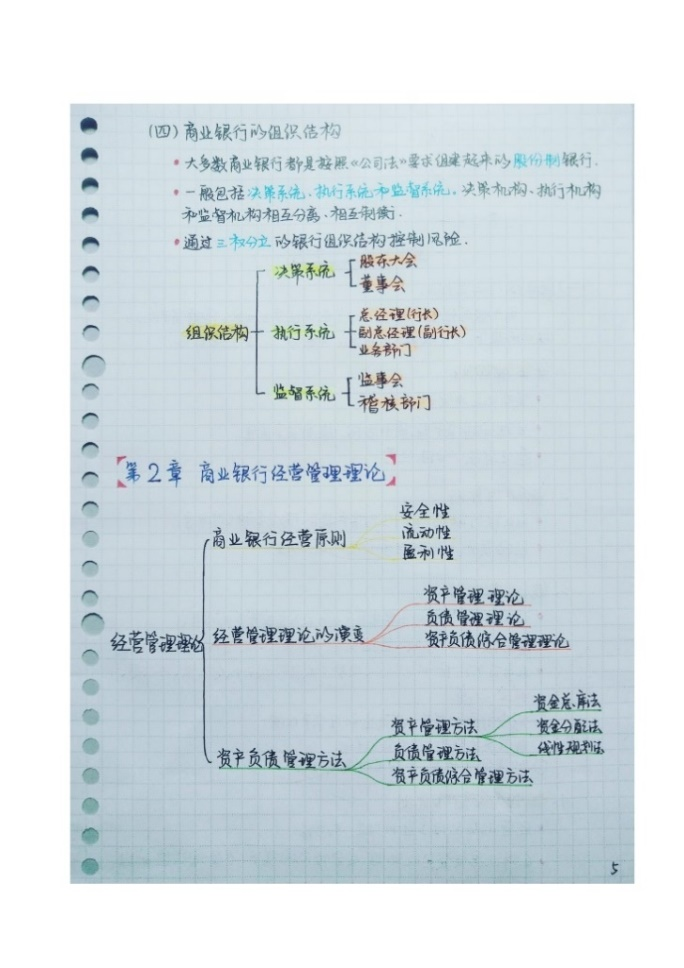 (四) 商业银行的组织结构
• 大多数商业银行都是按照《公司法》要求组建起来的股份制银行.
• 一般包括决策系统、执行系统和监督系统。决策机构、执行机构
和监督机构相互分离、相互制衡.
• 通过三权分立的银行组织结构控制风险.
组织结构
决策系统
股东大会
董事会
执行系统
总经理(行长)
副总经理(副行长)
业务部门
监督系统
监事会
稽核部门
【第2章 商业银行经营管理理论】
经营管理理论
商业银行经营原则
安全性
流动性
盈利性
经营管理理论的演变
资产管理理论
负债管理理论
资产负债综合管理理论
资产负债管理方法
资产管理方法
资金总库法
资金分配法
线性规划法
负债管理方法
资产负债综合管理方法
5